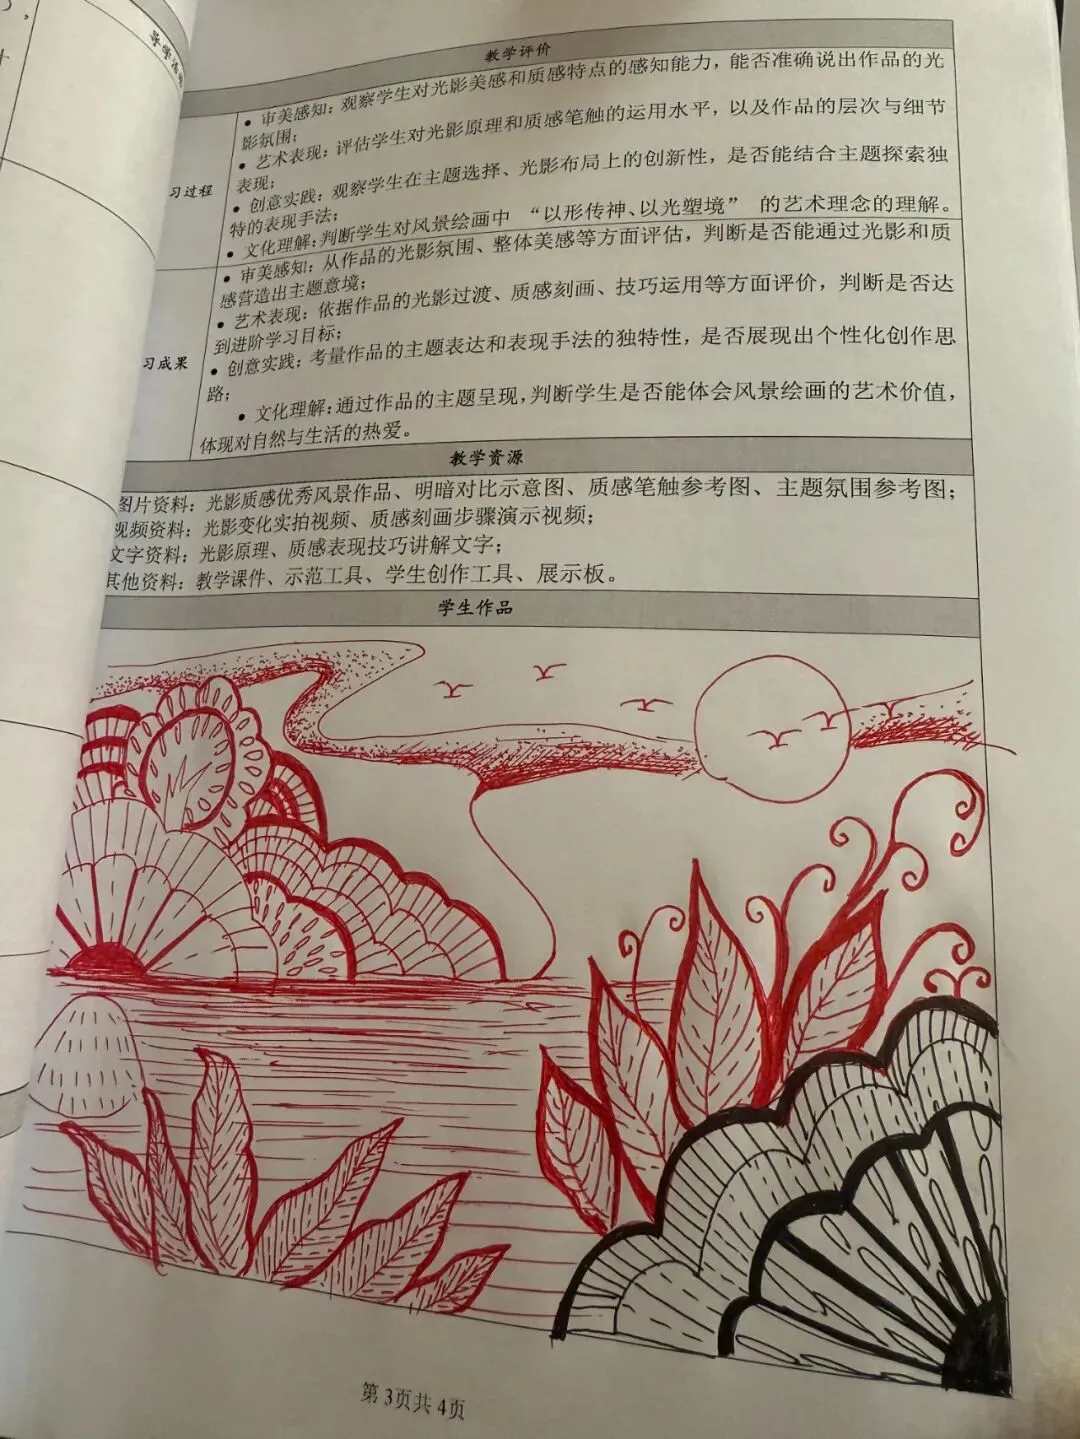 导学活
教学评价
• 审美感知：观察学生对光影美感和质感特点的感知能力，能否准确说出作品的光
影氛围；
• 艺术表现：评估学生对光影原理和质感笔触的运用水平，以及作品的层次与细节
表现；
习过程
• 创意实践：观察学生在主题选择、光影布局上的创新性，是否能结合主题探索独
特的表现手法；
• 文化理解：判断学生对风景绘画中“以形传神、以光塑境”的艺术理念的理解。
• 审美感知：从作品的光影氛围、整体美感等方面评估，判断是否能通过光影和质
感营造出主题意境；
• 艺术表现：依据作品的光影过渡、质感刻画、技巧运用等方面评价，判断是否达
到进阶学习目标；
习成果
• 创意实践：考量作品的主题表达和表现手法的独特性，是否展现出个性化创作思
路；
• 文化理解：通过作品的主题呈现，判断学生是否能体会风景绘画的艺术价值，
体现对自然与生活的热爱。
教学资源
图片资料：光影质感优秀风景作品、明暗对比示意图、质感笔触参考图、主题氛围参考图；
视频资料：光影变化实拍视频、质感刻画步骤演示视频；
文字资料：光影原理、质感表现技巧讲解文字；
其他资料：教学课件、示范工具、学生创作工具、展示板。
学生作品
第 3页共 4页